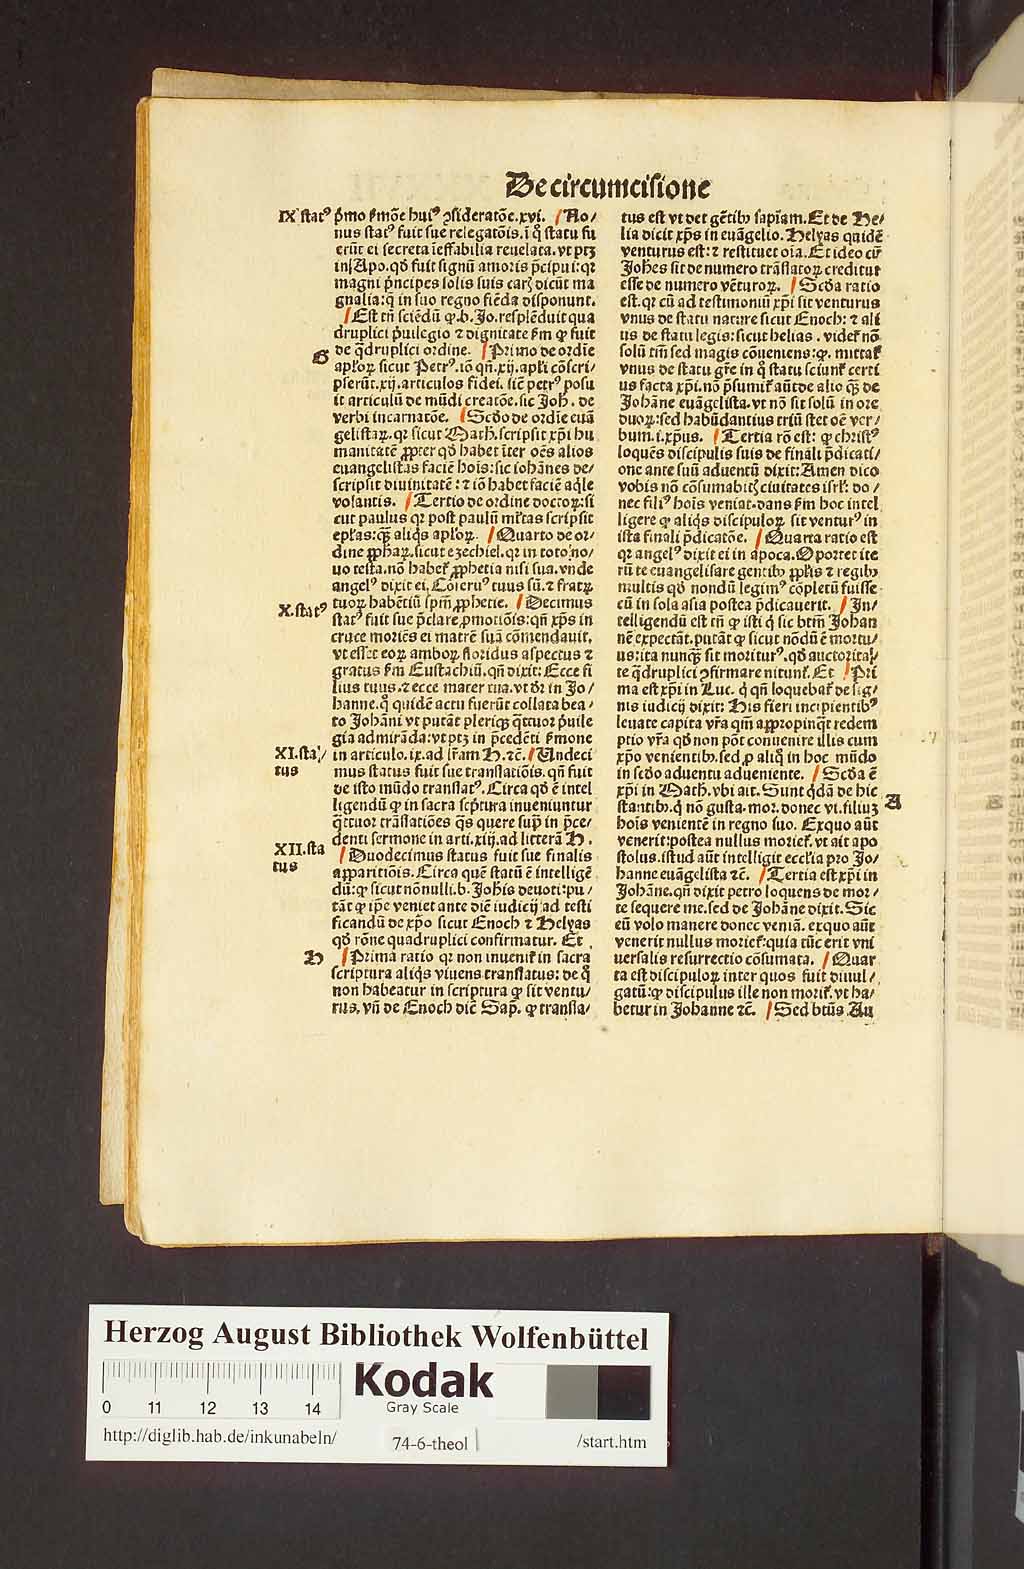 De circumcisione
IX statꝰ
p̄mo ẜmōe huiꝰ ꝯsideratōe.xvi. No/
nus statꝰ fuit sue relegatōis.ī q̊ statu fu
erūt ei secreta īeffabilia reuelata.vt ptꝫ
in Apo.qđ fuit signū amoris p̄cipui:qꝛ
magni p̄ncipes solis suis caꝝ dicūt ma
gnalia:q̄ in suo regno fiēda disponunt.
Est tn̄ sciēdū ꝙ.b.Jo.resplēduit qua
druplici p̄uilegio ⁊ dignitate ẜm ꝙ fuit
G
de q̄druplici ordine. Primo de ordīe
aploꝝ sicut Petrꝰ.iō qn̄.xij.apłi cōscri/
pserūt.xij.articulos fidei.sic petrꝰ posu
it articulū de mūdi creatōe.sic Joh.de
verbi incarnatōe. Scđo de ordīe euā
gelistaꝝ.qꝛ sicut Math.scripsit xp̄i hu
manitatē ꝓpter qđ habet īter oēs alios
euangelistas faciē hoīs:sic iohānes de/
scripsit diuinitatē:⁊ iō habet faciē aq̄le
volantis. Tertio de ordine doctoꝝ:si
cut paulus qꝛ post paulū mr̄tas scripsit
epłas:q̄ꝫ aliq̄s apłoꝝ. Quarto de or/
dine ꝓphaꝝ.sicut ezechiel.qꝛ in toto no/
uo testa.nō habet̄ ꝓphetia nisi sua.vnde
angelꝰ dixit ei.Cōseruꝰ tuus sū.⁊ fratrꝝ
X.statꝰ
tuoꝝ habētiū spm̄ ꝓphetie. Decimus
statꝰ fuit sue p̄clare ꝓmotiōis:qn̄ xp̄s in
cruce moriēs ei matrē suā cōmendauit,
vt esset eoꝝ amboꝝ floridus aspectus ⁊
gratus ẜm Eustachiū.qn̄ dixit:Ecce fi
lius tuus.⁊ ecce mater tua.vt dr̄ in Jo/
hanne.q̊ quidē actu fuerūt collata bea/
to Johāni vt putāt pleriqꝫ q̄ttuor p̄uile
gia admirāda:vt ptꝫ in p̄cedēti ẜmone
XI.sta/
tus
in articulo.ix.ad lr̄am H.⁊c̄. Undeci
mus status fuit sue translatiōis.qn̄ fuit
de isto mūdo translatꝰ.Circa qđ ē intel
ligendū ꝙ in sacra scp̄tura inueniuntur
q̄ttuor trāslatiōes q̄s quere sup̄ in p̄ce/
denti sermone in arti.xiij.ad litterā H.
XII.sta
tus
Duodecimus status fuit sue finalis
apparitiōis.Circa quē statū ē intelligē
dū:ꝙ sicut nōnulli.b.Joh̄is deuoti:pu/
tāt ꝙ ip̄e veniet ante diē iudicij ad testi
ficandū de xp̄o sicut Enoch ⁊ Helyas
qđ rōne quadruplici confirmatur. Et
H
Prima ratio qꝛ non inuenit̄ in sacra
scriptura aliq̄s viuens translatus:de q̊
non habeatur in scriptura ꝙ sit ventu/
rus.vn̄ de Enoch diē Sap̄.ꝙ transla/
tus est vt det gētibꝫ sapīam.Et de He/
lia dicit xp̄s in euāgelio.Helyas quidē
venturus est:⁊ restituet oīa.Et ideo cū
Joh̄es sit de numero trāslatoꝝ creditur
esse de numero vēturoꝝ. Scđa ratio
est.qꝛ cū ad testimoniū xp̄i sit venturus
vnus de statu nature sicut Enoch:⁊ ali
us de statu legis:sicut helias.videt̄ nō
solū tm̄ sed magis cōueniens:ꝙ.mittat̄
vnus de statu gr̄e in q̊ statu sciunt̄ certi
us facta xp̄i.nō p̄sumit̄ aūt de alio q̄ꝫ de
Johāne euāgelista.vt nō sit solū in ore
duoꝝ:sed habūdantius triū stet oē ver/
bum.i.xp̄us. Tertia rō est: ꝙ christꝰ
loquēs discipulis suis de finali p̄dicati/
one ante suū aduentū dixit:Amen dico
vobis nō cōsumabitꝫ ciuitates isrł:do/
nec filiꝰ hoīs veniat.dans ẜm hoc intel
ligere ꝙ aliq̄s discipuloꝝ sit venturꝰ in
ista finali p̄dicatōe. Quarta ratio est
qꝛ angelꝰ dixit ei in apoca.Oportet ite
rū te euangelisare gentibꝫ pp̄lis ⁊ regibꝫ
multis qđ nondū legimꝰ cōpletū fuisse
cū in sola asia postea p̄dicauerit. In/
telligendū est tn̄ ꝙ isti q̊ sic btm̄ Johan
nē expectāt.putāt ꝙ sicut nōdū ē mortu/
us:ita nunqꝫ sit moriturꝰ.qđ auctorita/
te q̄druplici ꝯfirmare nitunt̄. Et Pri
ma est xp̄i in Luc. q̊ qn̄ loquebat̄ de sig/
nis iudicij dixit: His fieri incipientibꝰ
leuate capita vr̄a qm̄ appropinq̄t redem
ptio vr̄a qđ non pōt conuenire illis cum
xp̄o venientibꝫ.sed ꝑ aliq̊ in hoc mūdo
in scđo aduentu adueniente. Scđa ē
A
xp̄i in Math.vbi ait.Sunt q̄dā de hic
stantibꝫ.q̊ nō gusta.mor.donec vi.filiuꝫ
hoīs venientē in regno suo. Exquo aūt
venerit:postea nullus moriet̄.vt ait apo
stolus.istud aūt intelligit eccłia pro Jo/
hanne euāgelista ⁊c̄. Tertia est xp̄i in
Johāne.qn̄ dixit petro loquens de mor/
te sequere me.sed de Johāne dixit.Sic
eū volo manere donec veniā. exquo aūt
venerit nullus moriet̄:quia tūc erit vni
uersalis resurrectio cōsumata. Quar
ta est discipuloꝝ inter quos fuit diuul/
gatū:ꝙ discipulus ille non morit̄.vt ha/
betur in Johanne ⁊c̄. Sed btūs Au
Herzog August Bibliothek Wolfenbüttel
Kodak
Gray Scale
0 11 12 13 14
http://diglib.hab.de/inkunabeln/
74-6-theol
/start.htm